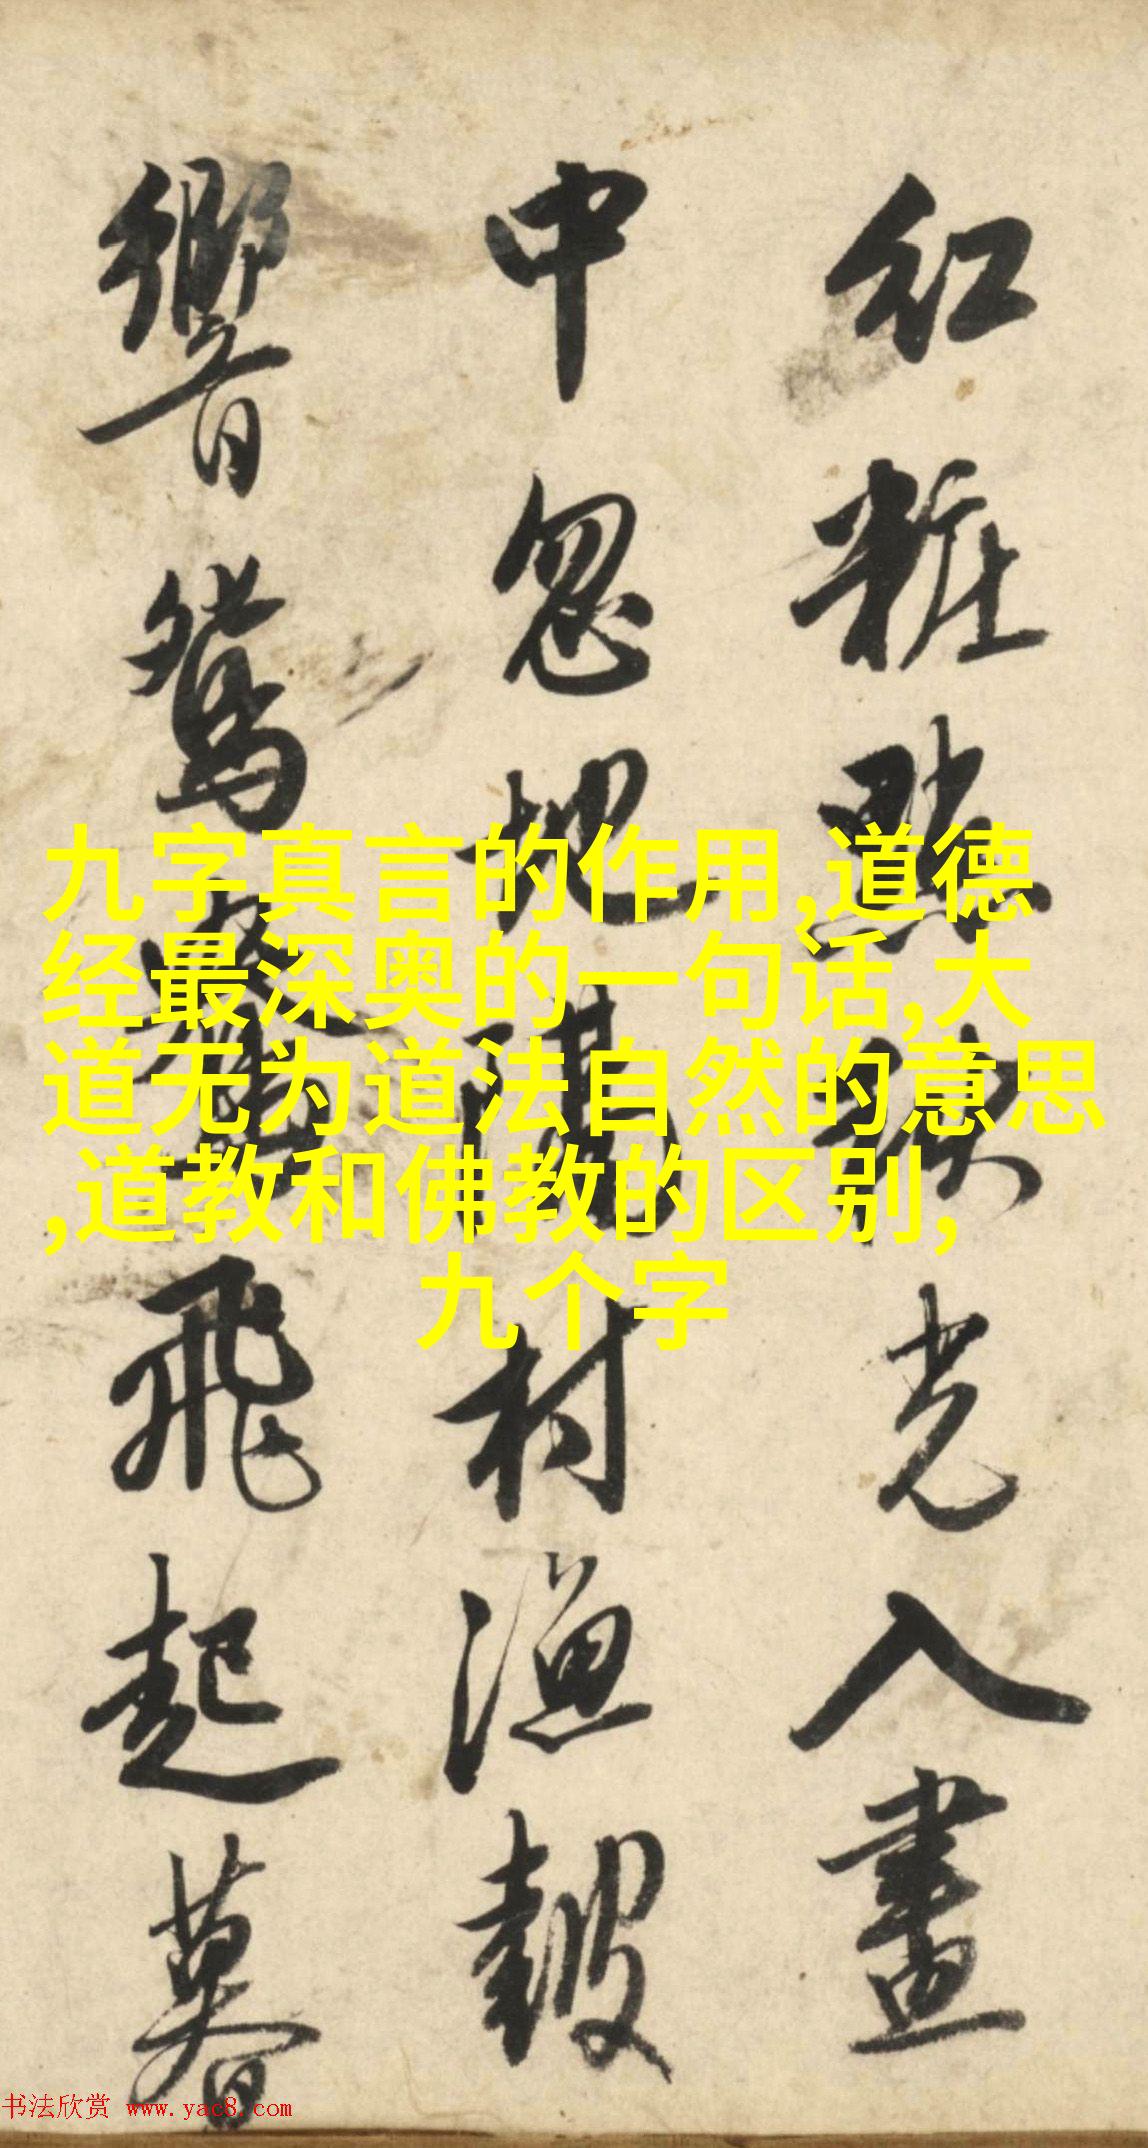 紅粧點光入畫
中忽地隔村漁鼓
響鴛飛起暮
九字真言的作用,道德
经最深奥的一句话,大
道无为道法自然的意思
,道教和佛教的区别,
九个字
书法欣赏 www.yac8.com